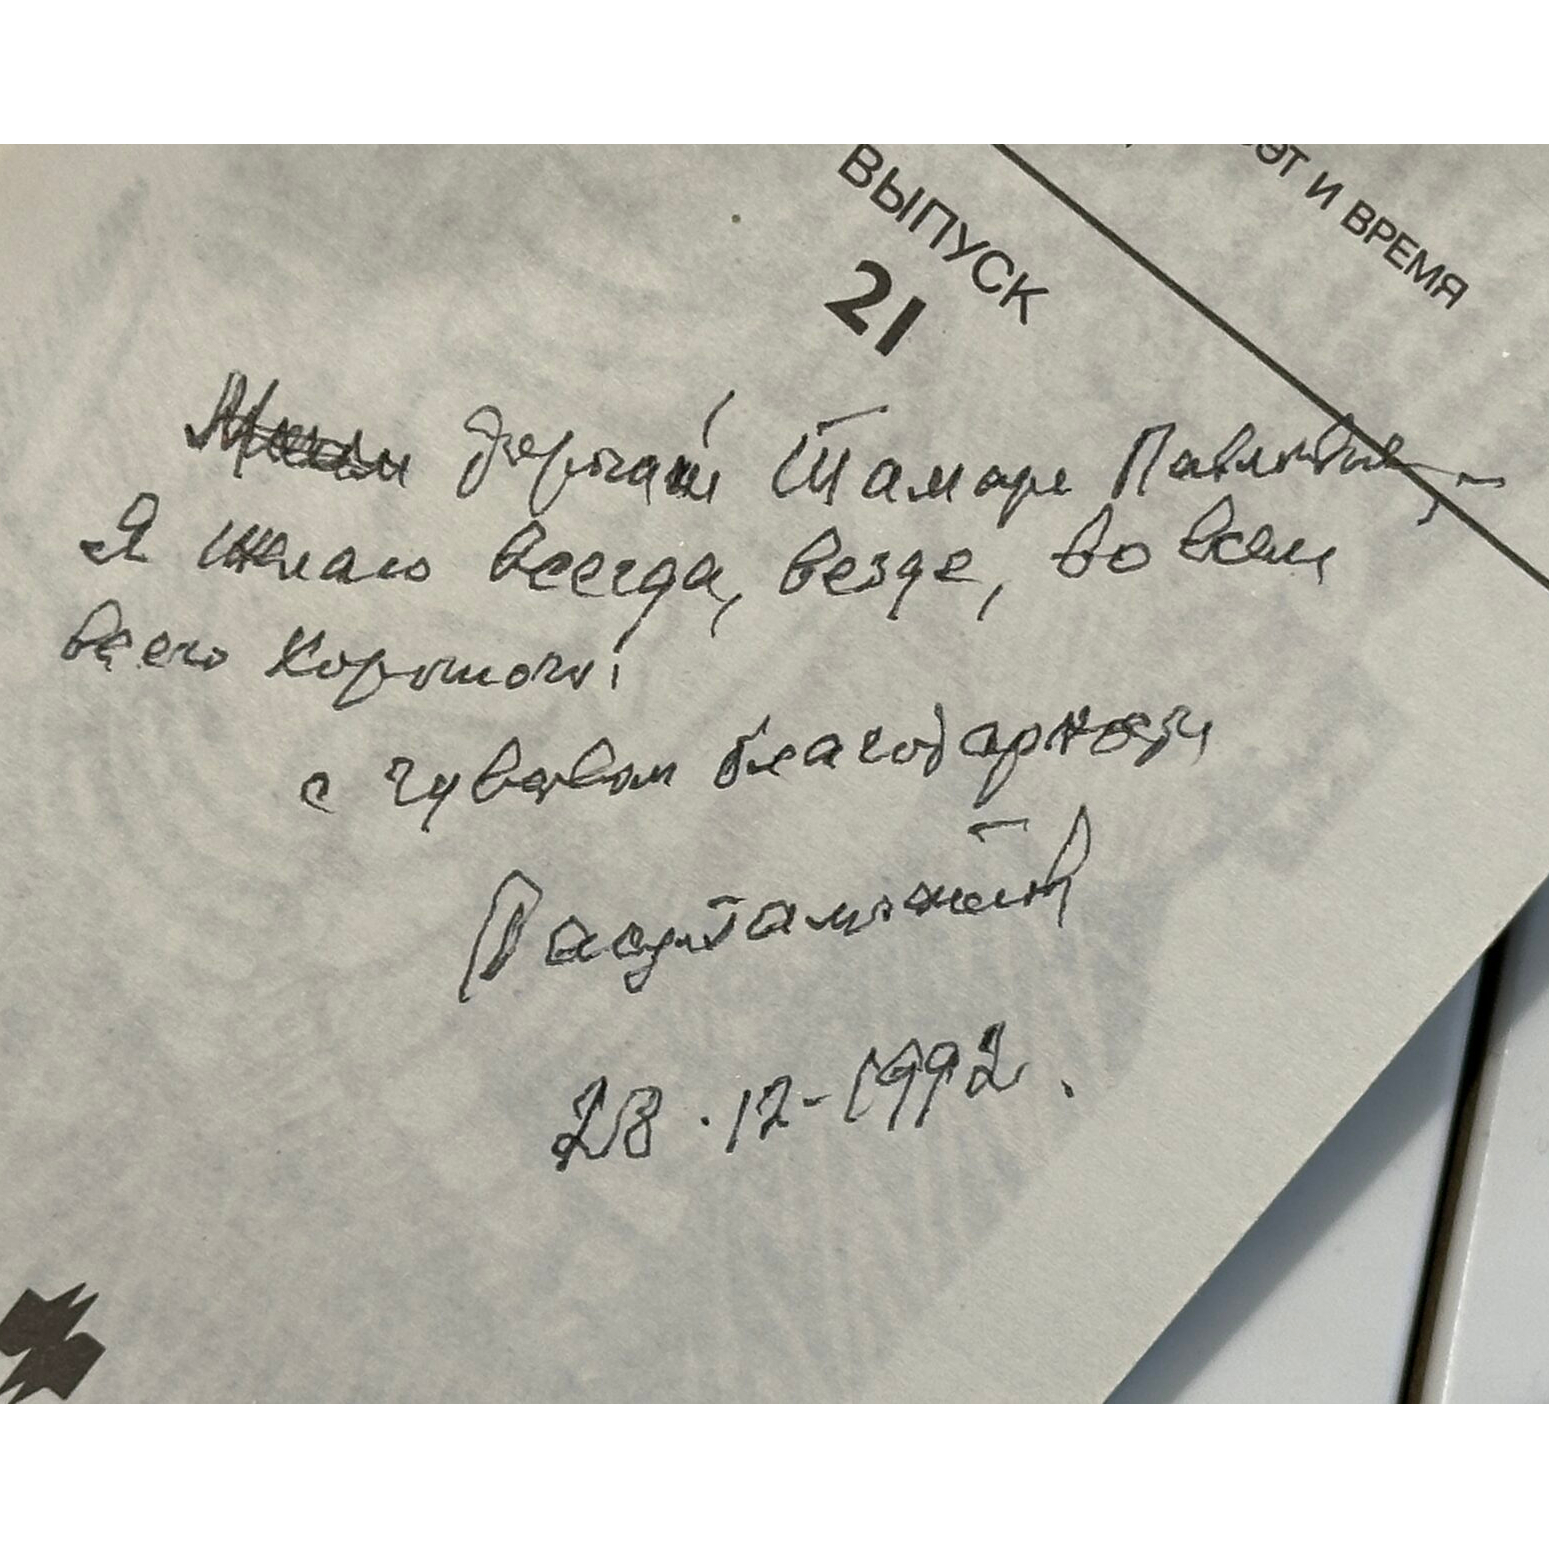 ЭТ И ВРЕМЯ
ВЫПУСК
21
дорогой Тамаре Павловне,
Я желаю всегда, везде, во всем
всего хорошего!
с чувством благодарности
28.12-1992.